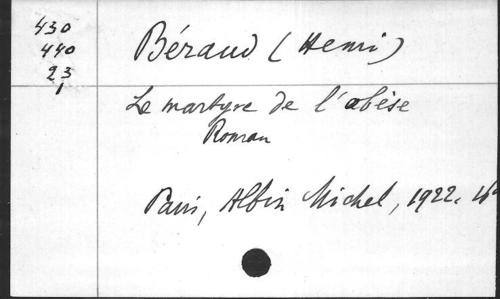 430
440
23
1
Béraud (Henri)
Le martyre de l'obèse
Roman
Paris, Albin Michel, 1922. 16°